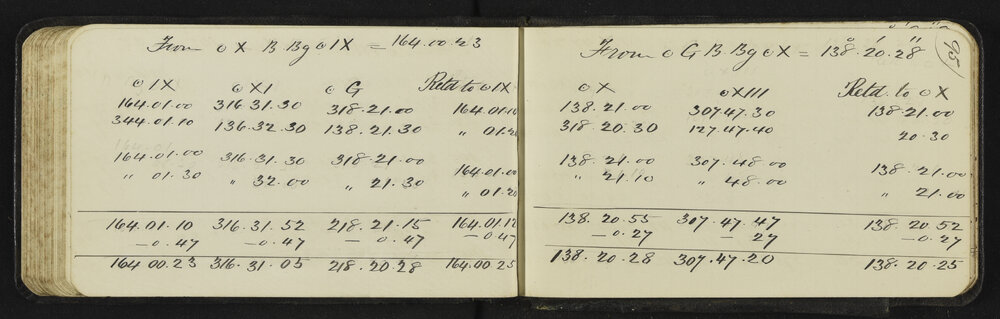 From ⊙ X B Bg ⊙ IX = 164.00.23
⊙ IX ⊙ XI ⊙ G Retd to ⊙ IX
164.01.00 316.31.30 318.21.00 164.01.10
344.01.10 136.32.30 138.21.30 " 01.20
164.01.00 316.31.30 318.21.00 164.01.00
" 01.30 " 32.00 " 21.30 " 01.20
164.01.10 316.31.52 218.21.15 164.01.12
-0.47 -0.47 -0.47 -0.47
164.00.23 316.31.05 218.20.28 164.00.25
95
From ⊙ G B Bg ⊙ X = 138°.20'.28"
⊙ X ⊙ XIII Retd. to ⊙ X
138.21.00 307.47.30 138.21.00
318.20.30 127.47.40 20.30
138.21.00 307.48.00 138.21.00
" 21.10 " 48.00 " 21.00
138.20.55 307.47.47 138.20.52
-0.27 -27 -0.27
138.20.28 307.47.20 138.20.25